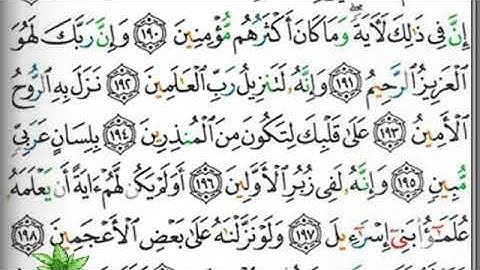 إِنَّ فِى ذَٰلِكَ لَـَٔايَةًۖ وَمَا كَانَ أَكْثَرُهُم مُّؤْمِنِينَ ١٩٠ وَإِنَّ رَبَّكَ لَهُوَ
ٱلْعَزِيزُ ٱلرَّحِيمُ ١٩١ وَإِنَّهُۥ لَتَنزِيلُ رَبِّ ٱلْعَٰلَمِينَ ١٩٢ نَزَلَ بِهِ ٱلرُّوحُ
ٱلْأَمِينُ ١٩٣ عَلَىٰ قَلْبِكَ لِتَكُونَ مِنَ ٱلْمُنذِرِينَ ١٩٤ بِلِسَانٍ عَرَبِىٍّ
مُّبِينٍ ١٩٥ وَإِنَّهُۥ لَفِى زُبُرِ ٱلْأَوَّلِينَ ١٩٦ أَوَلَمْ يَكُن لَّهُمْ ءَايَةً أَن يَعْلَمَهُۥ
عُلَمَٰٓؤُا۟ بَنِىٓ إِسْرَٰٓءِيلَ ١٩٧ وَلَوْ نَزَّلْنَٰهُ عَلَىٰ بَعْضِ ٱلْأَعْجَمِينَ ١٩٨